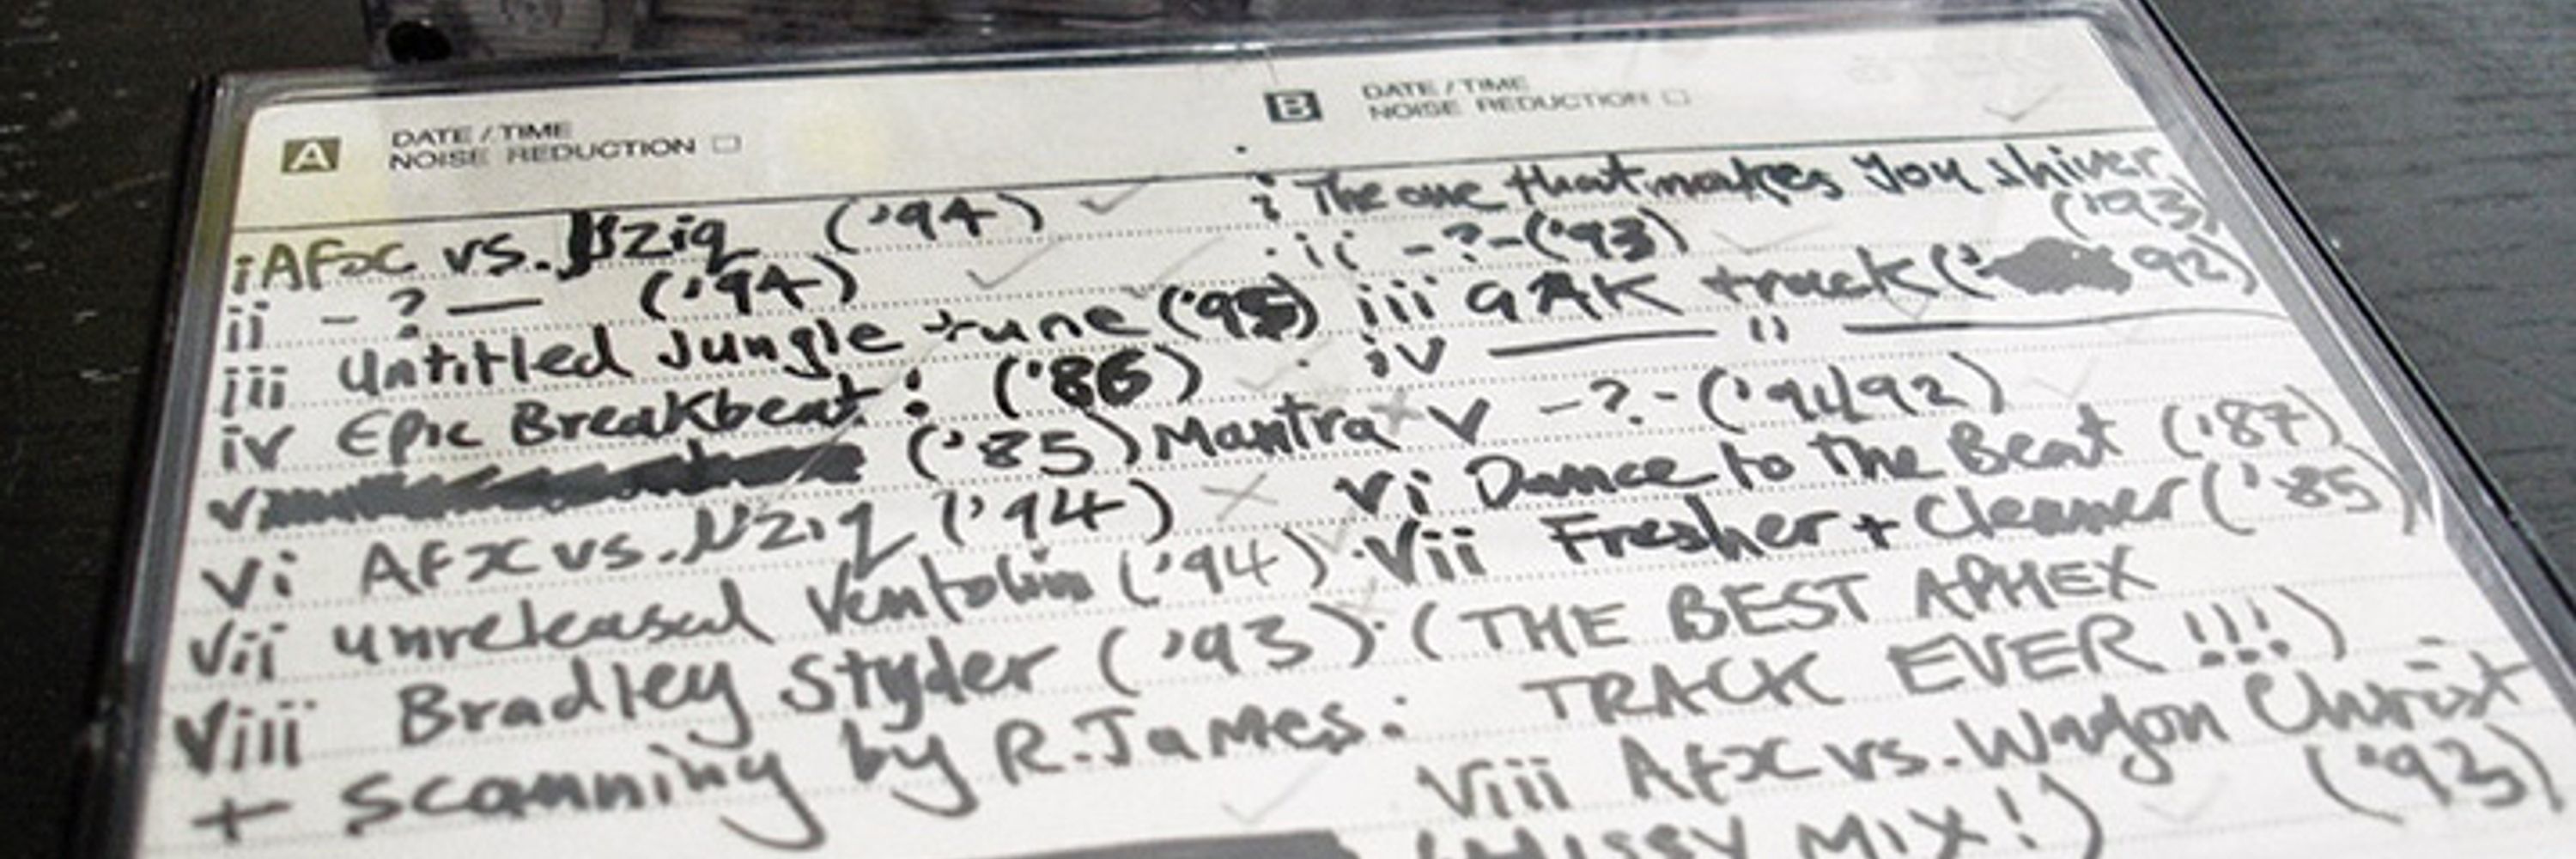 A DATE / TIME
NOISE REDUCTION
i AFX vs. µziq ('94)
ii - ? — ('94)
iii Untitled Jungle tune ('95)
iv Epic Breakbeat: ('86)
v ('85) Mantra
vi AFX vs. µziq ('94)
vii unreleased Ventolin ('94)
viii Bradley Styder ('93)
+ scanning by R. James.
B DATE / TIME
NOISE REDUCTION
i The one that makes you shiver
('93)
ii - ? - ('93)
iii GAK track (' 92)
iv —— " ——
v - ? - ('91/92)
vi Dance to the Beat ('87)
vii Fresher + Cleaner ('85)
(THE BEST APHEX
TRACK EVER !!!)
viii AFX vs. Wagon Christ
('93)
(HISSY MIX!)